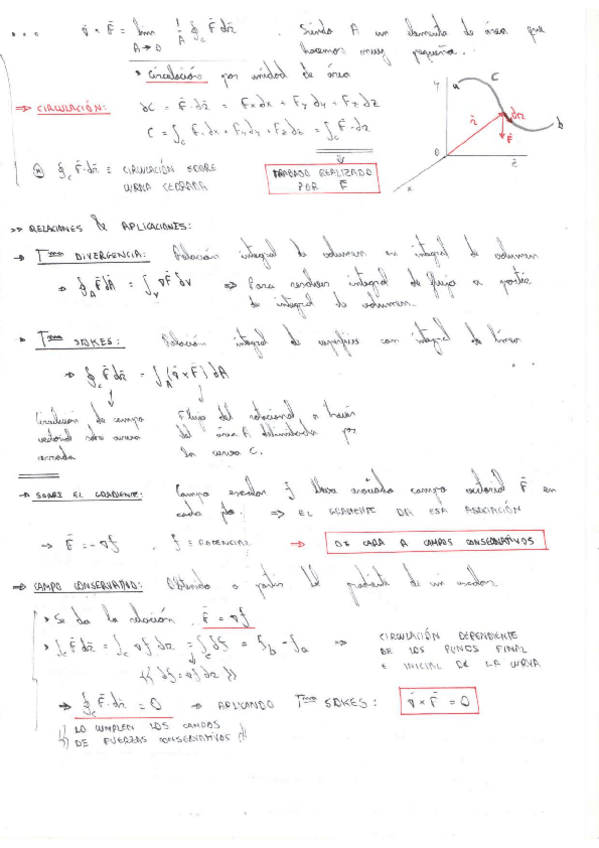 ... ∇ × F̄ = lim A→0 1/A ∮c F̄ dr̄ . Siendo A un elemento de área que
hacemos muy pequeño.
> Circulación por unidad de área
⇒ CIRCULACIÓN: dC = F̄·dr̄ = Fx dx + Fy dy + Fz dz
C = ∫c Fx dx + Fy dy + Fz dz = ∫c F̄·dr̄
∮c F̄·dr̄ ≡ CIRCULACIÓN SOBRE
CURVA CERRADA
TRABAJO REALIZADO
POR F̄
y
a
C
dr̄
r̄
F̄
b
0
z
x
>> RELACIONES & APLICACIONES:
→ Tma DIVERGENCIA: Relación integral de volumen en integral de volumen
⇒ ∮A F̄ dĀ = ∫V ∇F̄ dV ⇒ Para resolver integral de flujo a partir
de integral de volumen.
• Tma STOKES: Relación integral de superficie con integral de línea
⇒ ∮c F̄ dr̄ = ∫A (∇ × F̄) dA
Circulación de campo
vectorial sobre curva
cerrada
Flujo del rotacional a través
del área A delimitada por
la curva C.
→ SOBRE EL GRADIENTE: Campo escalar f lleva asociado campo vectorial F̄ en
cada pto. ⇒ EL GRADIENTE DA ESA ASOCIACIÓN
→ F̄ = -∇f . f = POTENCIAL → DE CARA A CAMPOS CONSERVATIVOS
⇒ CAMPO CONSERVATIVO: Obtenido a partir del gradiente de un escalar.
> Se da la relación . F̄ = ∇f
> ∫c F̄ dr̄ = ∫c ∇f dr = ∫c df = fb - fa ⇒ CIRCULACIÓN DEPENDIENTE
DE LOS PUNTOS FINAL
E INICIAL DE LA CURVA
{{ df = ∇f dr }}
⇒ ∮c F̄·dr̄ = 0 → APLICANDO Tma STOKES: ∇ × F̄ = 0
LO CUMPLEN LOS CAMPOS
DE FUERZAS CONSERVATIVOS